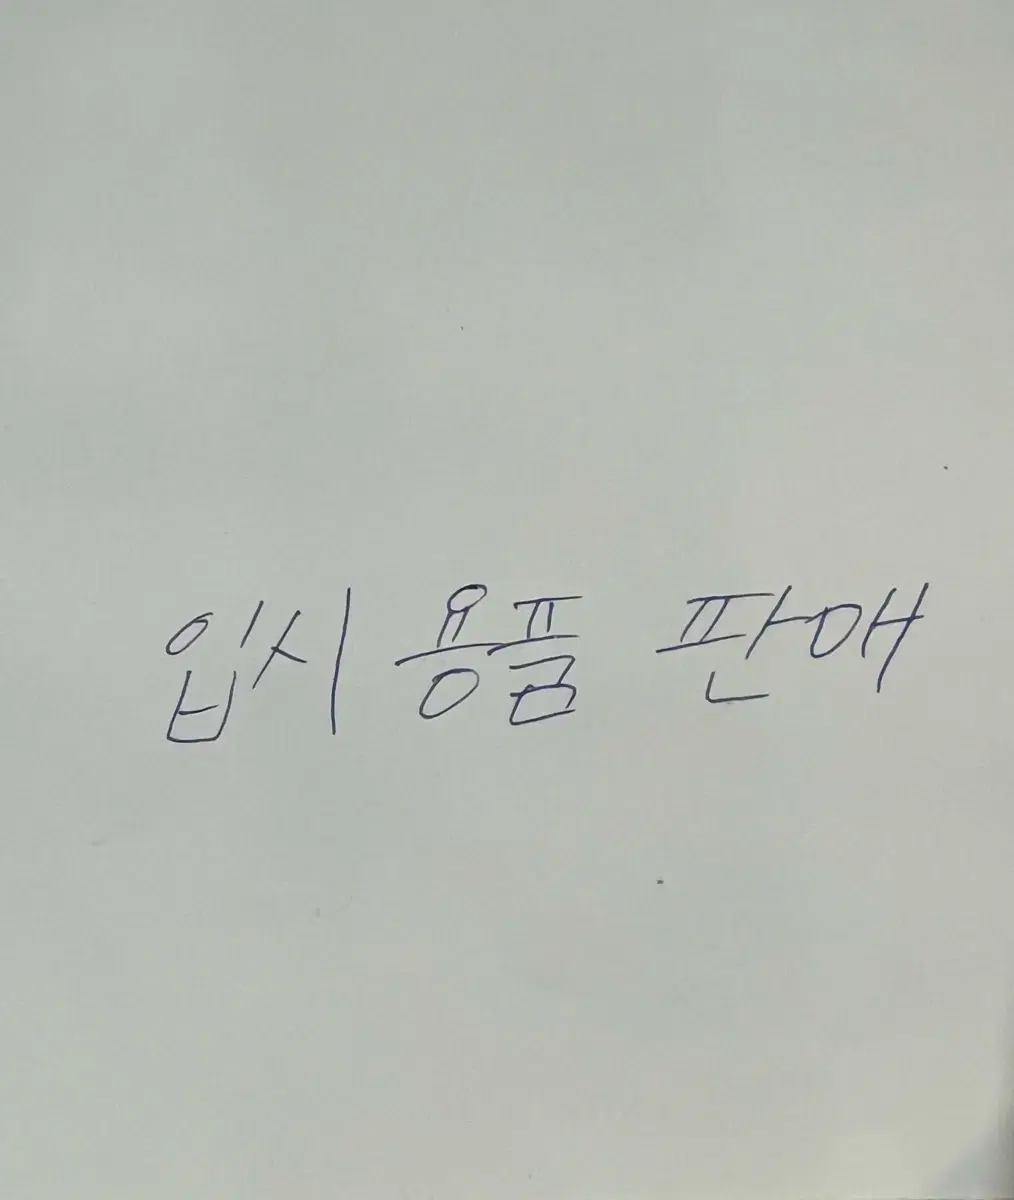 입시 용품 판매